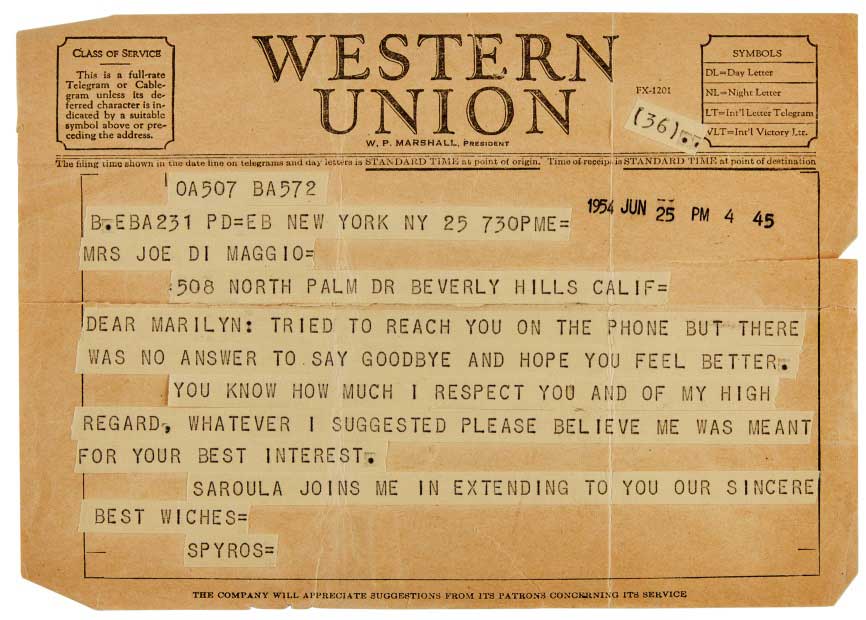 CLASS OF SERVICE
This is a full-rate
Telegram or Cable-
gram unless its de-
ferred character is in-
dicated by a suitable
symbol above or pre-
ceding the address.
WESTERN
UNION
W. P. MARSHALL, PRESIDENT
FX-1201
(36)..
SYMBOLS
DL=Day Letter
NL=Night Letter
LT=Int'l Letter Telegram
VLT=Int'l Victory Ltr.
The filing time shown in the date line on telegrams and day letters is STANDARD TIME at point of origin. Time of receipt is STANDARD TIME at point of destination
OA507 BA572
B.EBA231 PD=EB NEW YORK NY 25 730PME=
1954 JUN 25 PM 4 45
MRS JOE DI MAGGIO=
:508 NORTH PALM DR BEVERLY HILLS CALIF=
DEAR MARILYN: TRIED TO REACH YOU ON THE PHONE BUT THERE
WAS NO ANSWER TO SAY GOODBYE AND HOPE YOU FEEL BETTER.
YOU KNOW HOW MUCH I RESPECT YOU AND OF MY HIGH
REGARD, WHATEVER I SUGGESTED PLEASE BELIEVE ME WAS MEANT
FOR YOUR BEST INTEREST.
SAROULA JOINS ME IN EXTENDING TO YOU OUR SINCERE
BEST WICHES=
SPYROS=
THE COMPANY WILL APPRECIATE SUGGESTIONS FROM ITS PATRONS CONCERNING ITS SERVICE